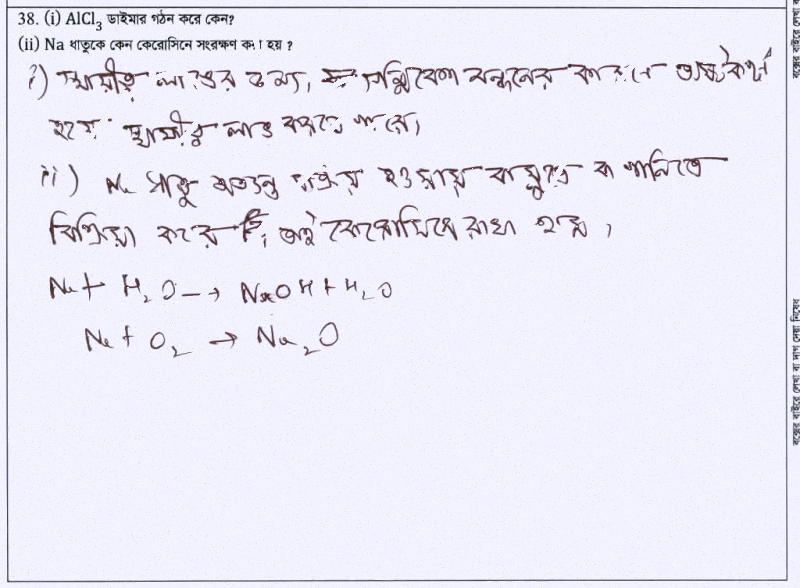 38. (i) AlCl₃ ডাইমার গঠন করে কেন?
(ii) Na ধাতুকে কেন কেরোসিনে সংরক্ষণ করা হয় ?
i) স্থায়ীত্ব লাভের জন্য, সন্নিবেশ বন্ধনের কারণে অষ্টকপূর্ণ
হয়ে স্থায়ীত্ব লাভ করতে পারে।
ii) Na ধাতু অত্যন্ত সক্রিয় হওয়ায় বায়ুতে বা পানিতে
বিক্রিয়া করে তাই কেরোসিনে রাখা হয় ।
Na + H₂O → NaOH + H₂O
Na + O₂ → Na₂O
বক্সের বাইরে লেখা বা দাগ দেয়া নিষেধ